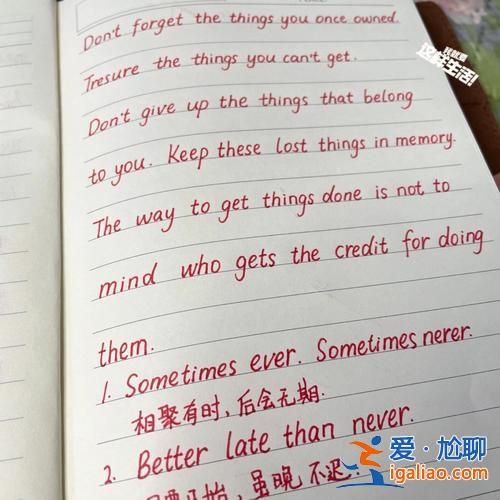 我就是
这样生活!
Don't forget the things you once owned.
Tresure the things you can't get.
Don't give up the things that belong
to you. Keep these lost things in memory.
The way to get things done is not to
mind who gets the credit for doing
them.
1. Sometimes ever. Sometimes nerer.
相聚有时，后会无期.
2. Better late than never.
虽晚不迟.
爱·尬聊
igaliao.com